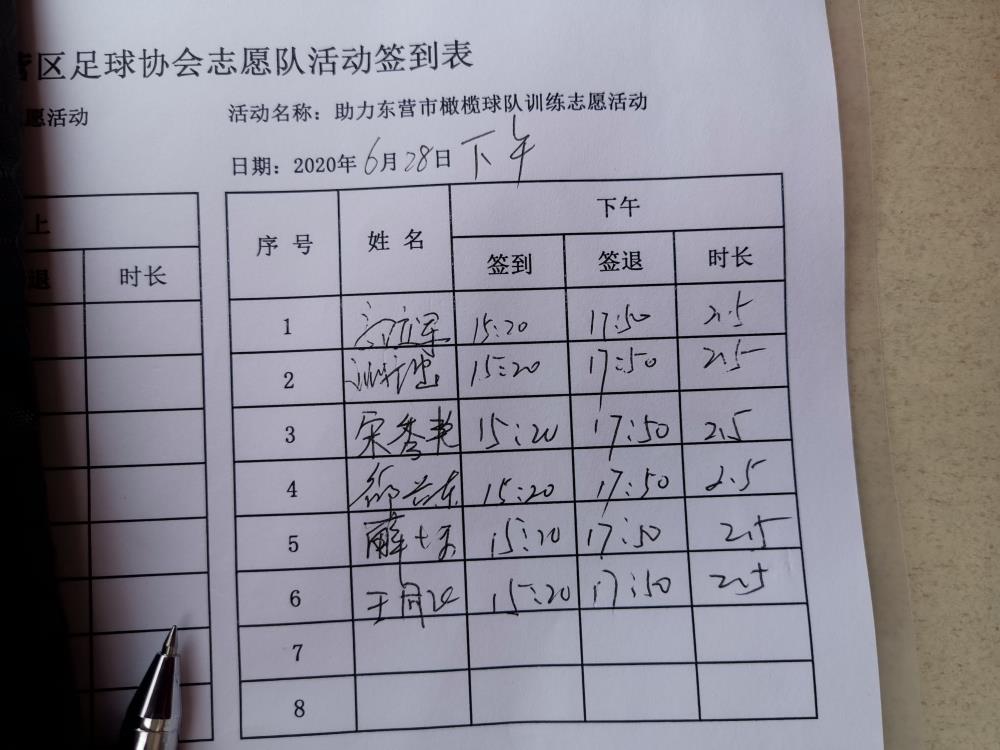 区足球协会志愿队活动签到表
愿活动
活动名称：助力东营市橄榄球队训练志愿活动
日期：2020年6月28日 下午
上
退 时长
序号 姓名 下午
签到 签退 时长
1 15:20 17:50 2.5
2 15:20 17:50 2.5
3 宋秀艳 15:20 17:50 2.5
4 15:20 17:50 2.5
5 15:20 17:50 2.5
6 15:20 17:50 2.5
7
8